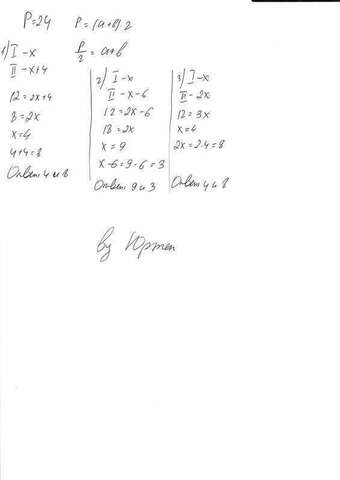 P=24 P=(a+b)·2
P/2 = a+b
1/ I - x
II - x+4
12=2x+4
8=2x
x=4
4+4=8
Ответ 4 и 8
2/ I - x
II - x-6
12=2x-6
18=2x
x=9
x-6=9-6=3
Ответ 9 и 3
3/ I - x
II - 2x
12=3x
x=4
2x=2·4=8
Ответ 4 и 8
by Юрген